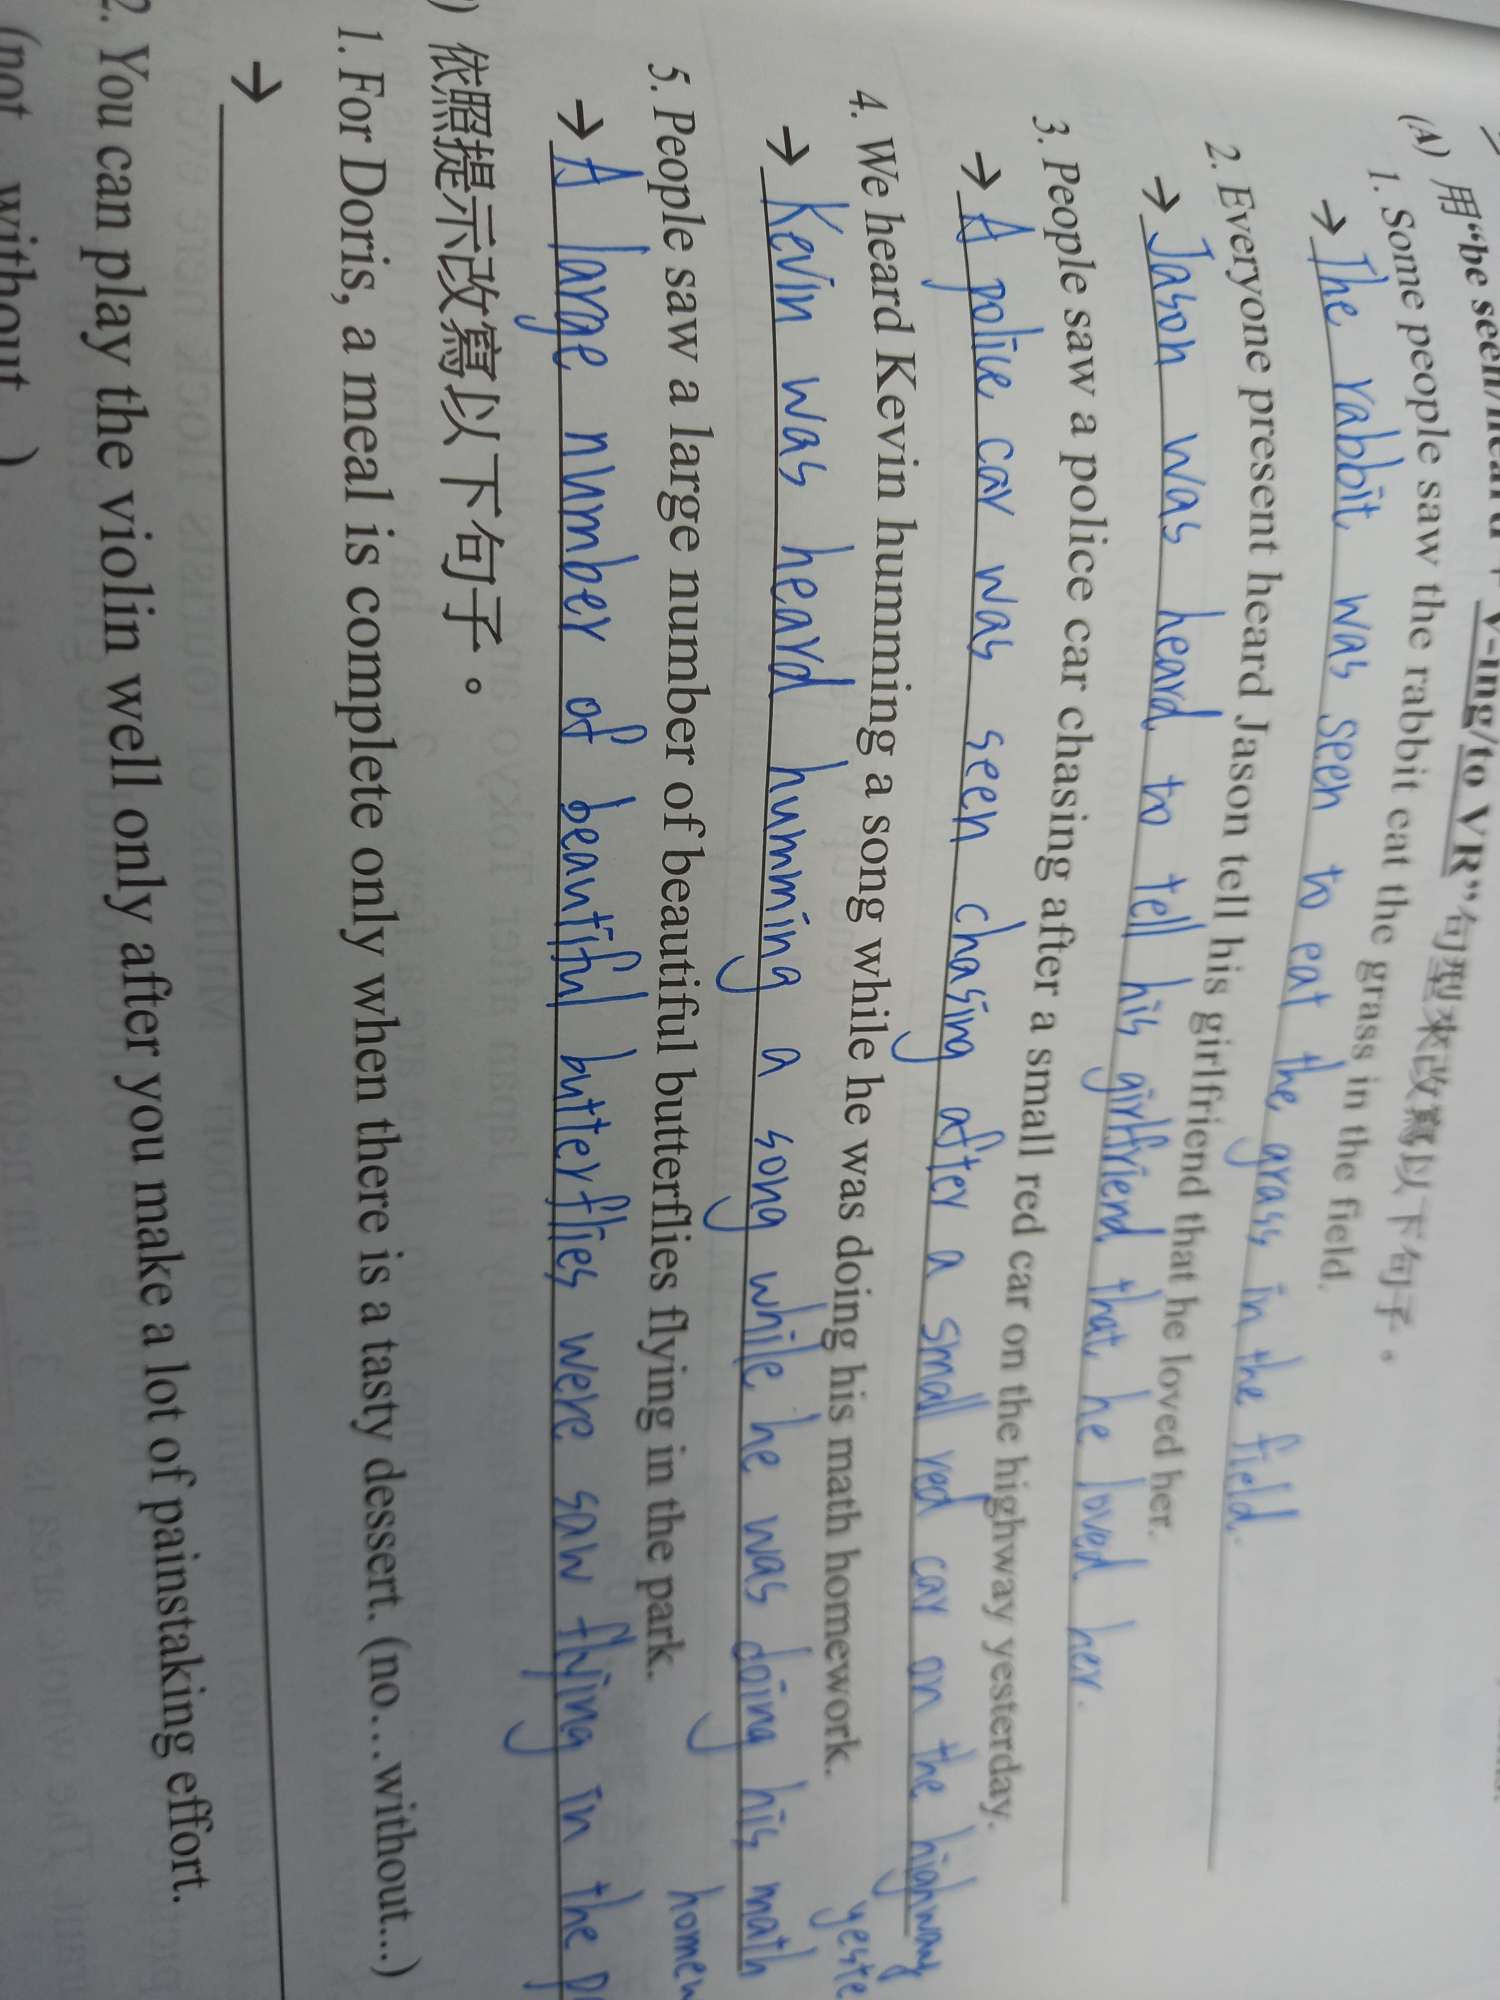 (A) 用“be seen/heard + V-ing/to VR”句型來改寫以下句子。
1. Some people saw the rabbit eat the grass in the field.
→ The rabbit was seen to eat the grass in the field.
2. Everyone present heard Jason tell his girlfriend that he loved her.
→ Jason was heard to tell his girlfriend that he loved her.
3. People saw a police car chasing after a small red car on the highway yesterday.
→ A police car was seen chasing after a small red car on the highway
yeste
4. We heard Kevin humming a song while he was doing his math homework.
→ Kevin was heard humming a song while he was doing his math
homew
5. People saw a large number of beautiful butterflies flying in the park.
→ A large number of beautiful butterflies were saw flying in the p
) 依照提示改寫以下句子。
1. For Doris, a meal is complete only when there is a tasty dessert. (no…without...)
→
2. You can play the violin well only after you make a lot of painstaking effort.
(not…without...)